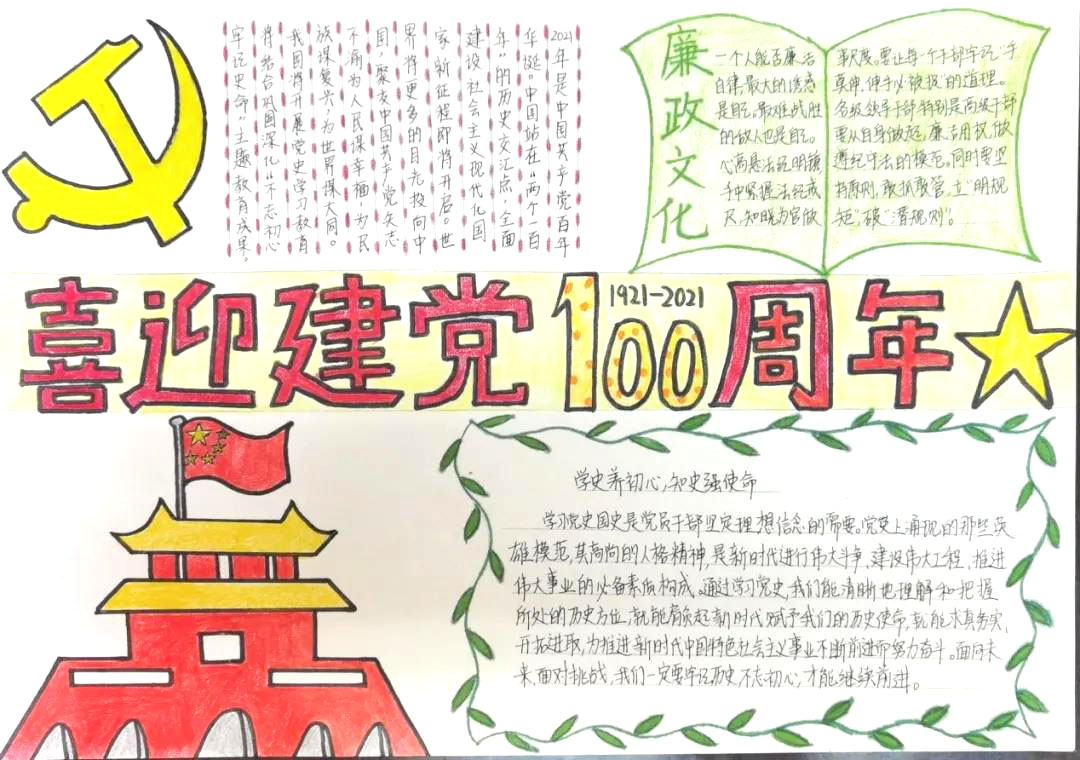 2021年是中国共产党百年
华诞。中国站在"两个一百
年"的历史交汇点,全面
建设社会主义现代化国
家新征程即将开启。世
界将更多的目光投向中
国,聚交中国共产党矢志
不渝为人民谋幸福,为民
族谋复兴,为世界谋大同。
我国将开展党史学习教育
将结合巩固深化"不忘初心
牢记史命"主题教育成果。
廉政文化
一个人能否廉洁
自律,最大的诱惑
是自己。最难战胜
的敌人也是自己。
心高悬法纪明镜
手中紧握法纪戒
尺,知晓为官做
事尺度。要让每一个干部牢记"手
莫伸,伸手必被捉"的道理。
各级领导干部特别是高级干部
要从自身做起,廉洁用权,做
遵纪守法的模范。同时要坚
持原则、敢抓敢管,立"明规
矩"破"潜规则"。
喜迎建党100周年
1921-2021
学史养初心,知史强使命
学习党史国史是党员干部坚定理想信念的需要。党史上涌现的那些英
雄模范,其高尚的人格精神,是新时代进行伟大斗争,建设伟大工程,推进
伟大事业的必备素质构成。通过学习党史,我们能清晰地理解和把握
所处的历史方位,就能肩负起新时代赋予我们的历史使命,就能求真务实,
开拓进取,为推进新时代中国特色社会主义事业不断前进而努力奋斗。面向未
来,面对挑战,我们一定要牢记历史,不忘初心,才能继续前进。